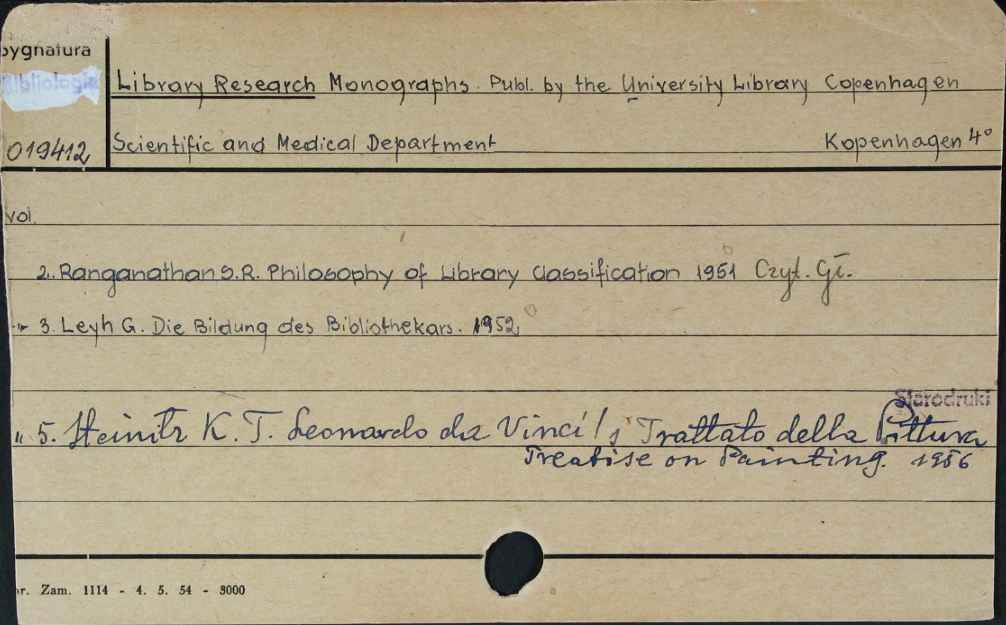 sygnatura
Bibliologia
Library Research Monographs. Publ. by the University Library Copenhagen
019412
Scientific and Medical Department Kopenhagen 4°
vol.
2. Ranganathan S.R. Philosophy of Library Classification 1951 Czyt. Gł.
" 3. Leyh G. Die Bildung des Bibliothekars. 1952,
Starodruki
" 5. Steinitz K. T. Leonardo da Vinci's Trattato della Pittura
Treatise on Painting. 1956
nr. Zam. 1114 - 4. 5. 54 - 3000